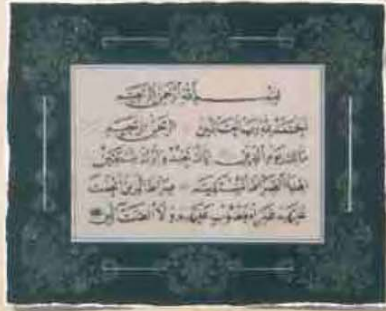 بسم الله الرحمن الرحيم
الحمد لله رب العالمين الرحمن الرحيم
مالك يوم الدين إياك نعبد وإياك نستعين
اهدنا الصراط المستقيم صراط الذين أنعمت
عليهم غير المغضوب عليهم ولا الضالين